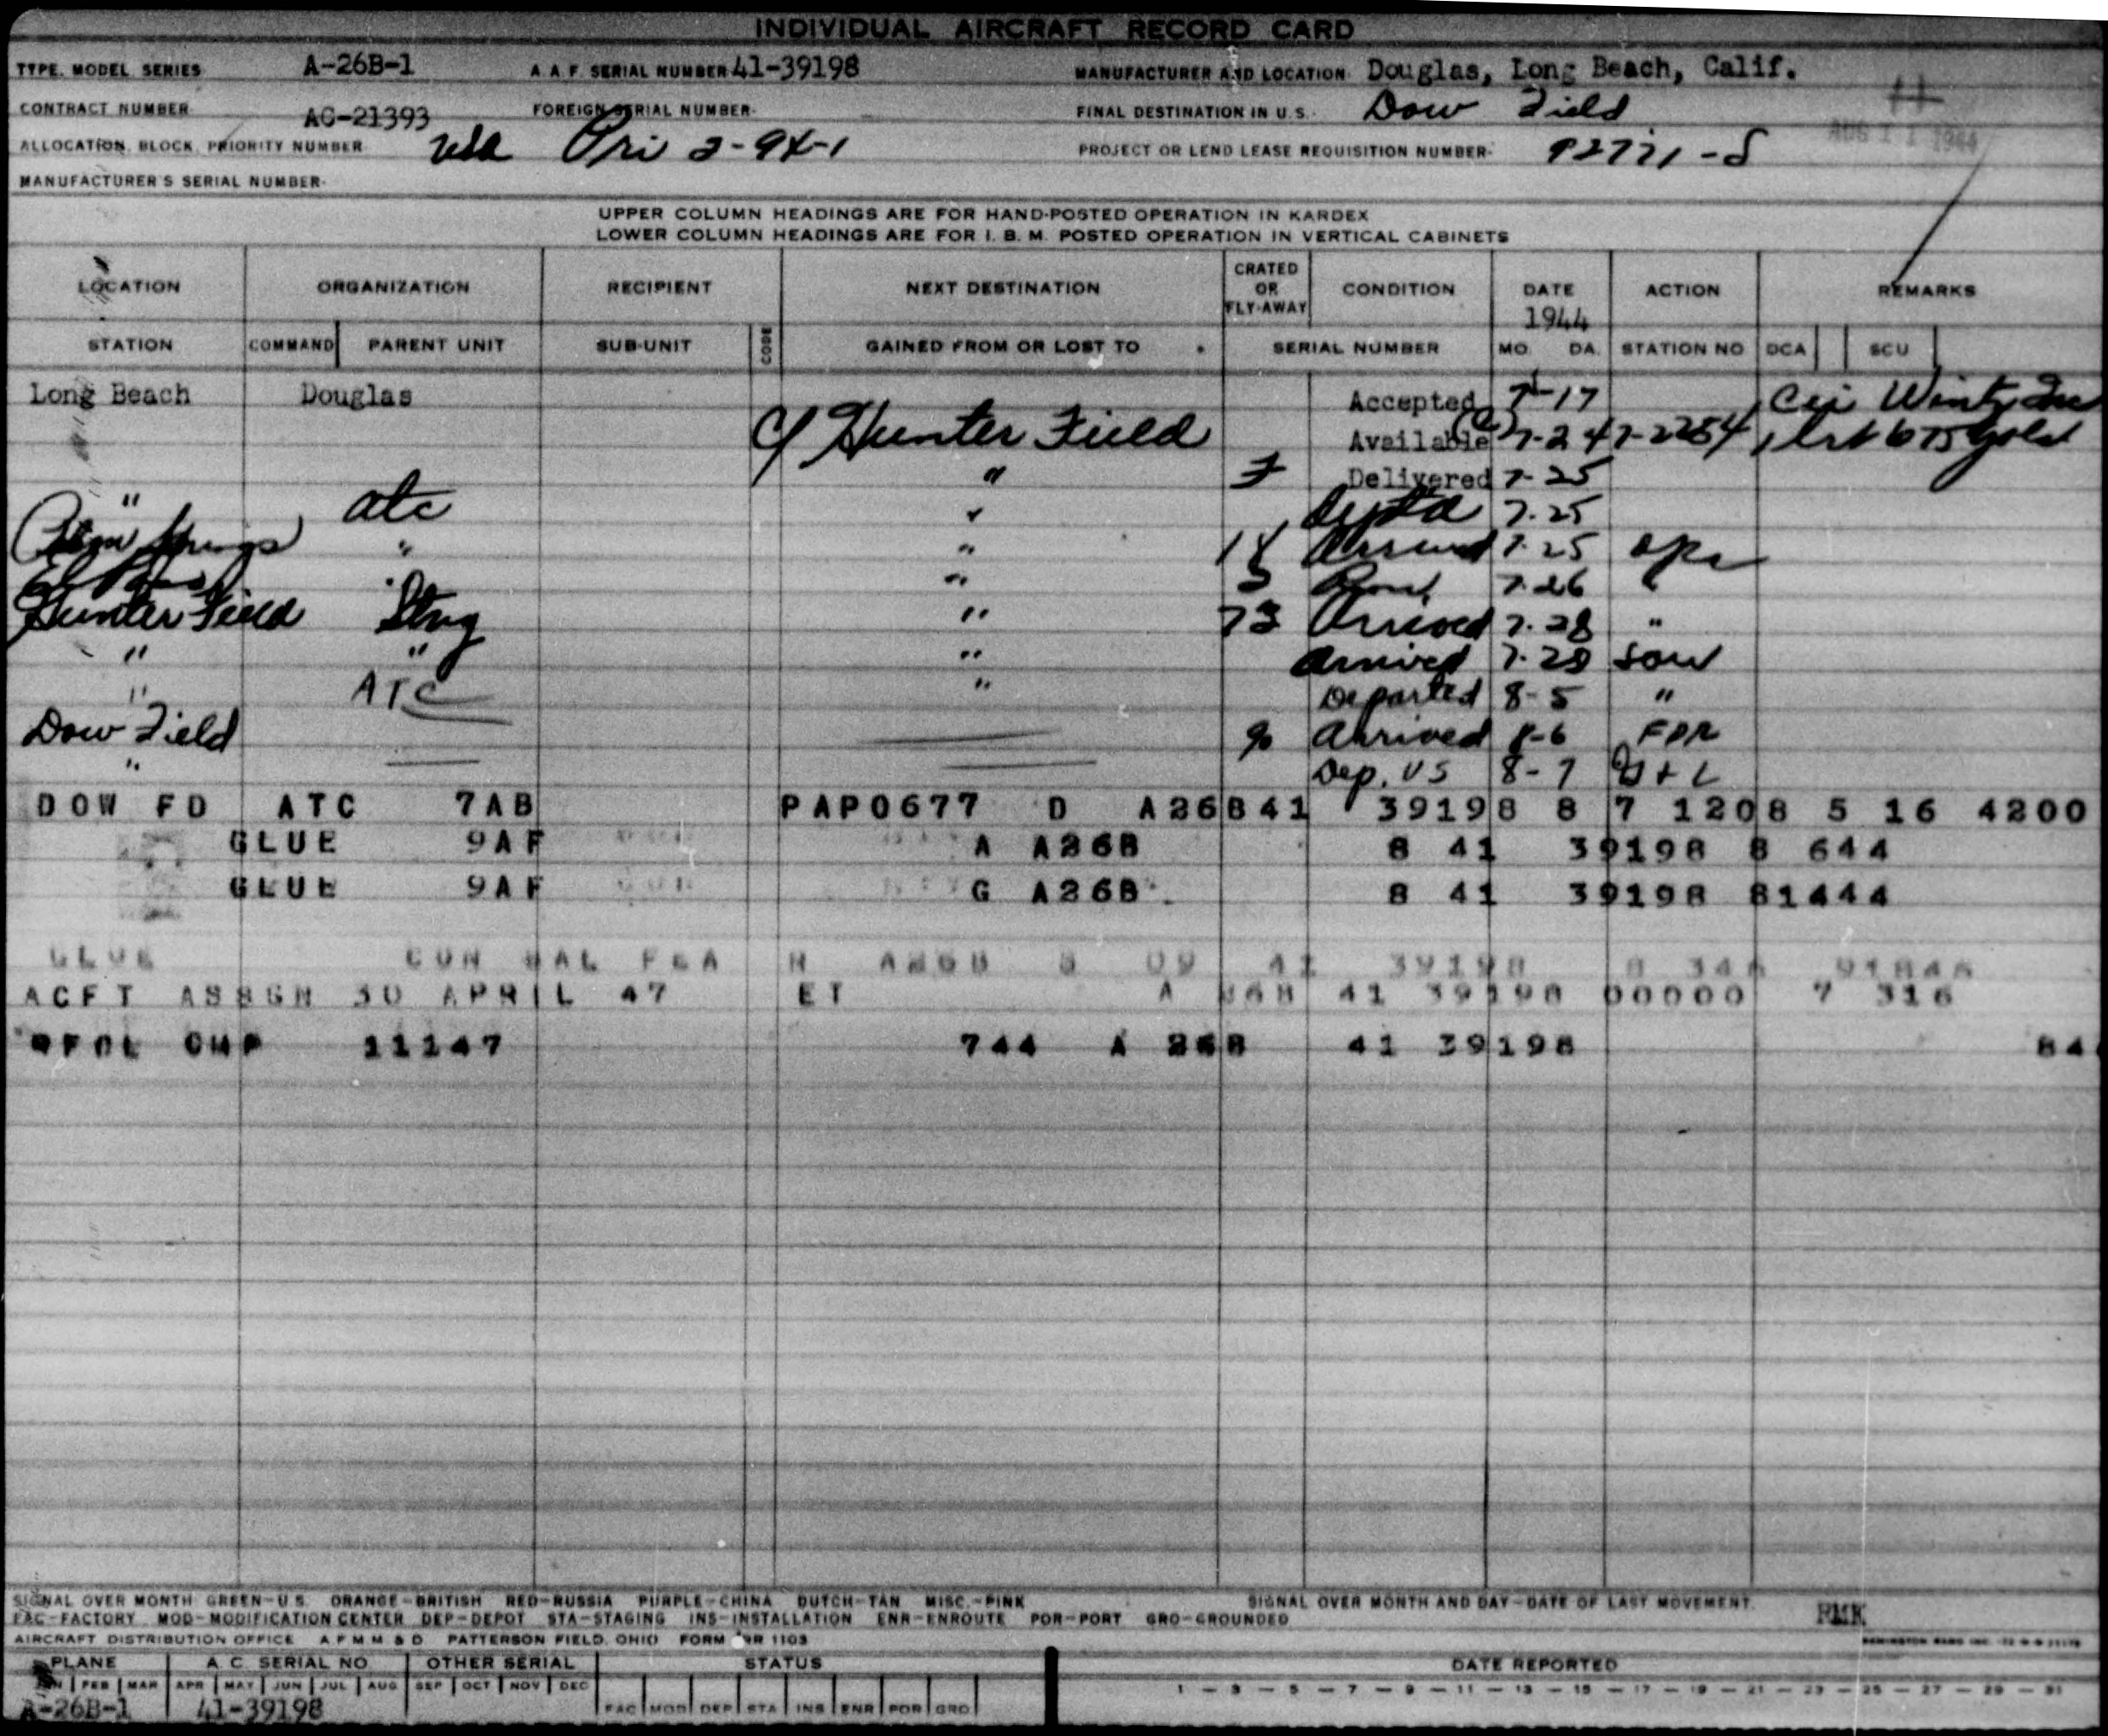 INDIVIDUAL AIRCRAFT RECORD CARD
TYPE, MODEL SERIES A-26B-1 A.A.F. SERIAL NUMBER 41-39198 MANUFACTURER AND LOCATION Douglas, Long Beach, Calif.
CONTRACT NUMBER AC-21393 FOREIGN SERIAL NUMBER FINAL DESTINATION IN U.S. Dow Field
AUG 11 1944
ALLOCATION, BLOCK, PRIORITY NUMBER USA Pri 2-94-1 PROJECT OR LEND LEASE REQUISITION NUMBER 92771-S
MANUFACTURER'S SERIAL NUMBER
UPPER COLUMN HEADINGS ARE FOR HAND-POSTED OPERATION IN KARDEX
LOWER COLUMN HEADINGS ARE FOR I. B. M. POSTED OPERATION IN VERTICAL CABINETS
LOCATION ORGANIZATION RECIPIENT NEXT DESTINATION CRATED OR FLY-AWAY CONDITION DATE 1944 ACTION REMARKS
STATION COMMAND PARENT UNIT SUB-UNIT CODE GAINED FROM OR LOST TO SERIAL NUMBER MO. DA. STATION NO DCA SCU
Long Beach Douglas Accepted 7-17
C/ Hunter Field Available 7-24 7-2254
" F Delivered 7-25
" atc " 7-25
Palm Springs " " Arrived 7-25 opr
El Paso " " 7-26 "
Hunter Field Stng " 73 Arrived 7-28 "
" " " Arrived 7-28 sow
" ATC " Departed 8-5 "
Dow Field 90 Arrived 8-6 FDR
" Dep. US 8-7
DOW FD ATC 7AB PAP0677 D A26B41 39198 8 7 1208 5 16 4200
GLUE 9AF A A26B 8 41 39198 8 644
GLUE 9AF G A26B 8 41 39198 81444
GLUE CON SAL FEA A26B 41 39198
ACFT ASSGN 30 APRIL 47 ET A 26B 41 39198 00000 7 316
RFDL CMP 11147 744 A 26B 41 39198 84
SIGNAL OVER MONTH GREEN-U.S. ORANGE-BRITISH RED-RUSSIA PURPLE-CHINA DUTCH-TAN MISC.-PINK SIGNAL OVER MONTH AND DAY-DATE OF LAST MOVEMENT.
FAC-FACTORY MOD-MODIFICATION CENTER DEP-DEPOT STA-STAGING INS-INSTALLATION ENR-ENROUTE POR-PORT GRO-GROUNDED RMK
AIRCRAFT DISTRIBUTION OFFICE A F M M & D PATTERSON FIELD, OHIO FORM 1103
PLANE A. C. SERIAL NO OTHER SERIAL STATUS DATE REPORTED
FEB MAR APR MAY JUN JUL AUG SEP OCT NOV DEC 1 - 3 - 5 - 7 - 9 - 11 - 13 - 15 - 17 - 19 - 21 - 23 - 25 - 27 - 29 - 31
A-26B-1 41-39198 FAC MOD DEP STA INS ENR POR GRO